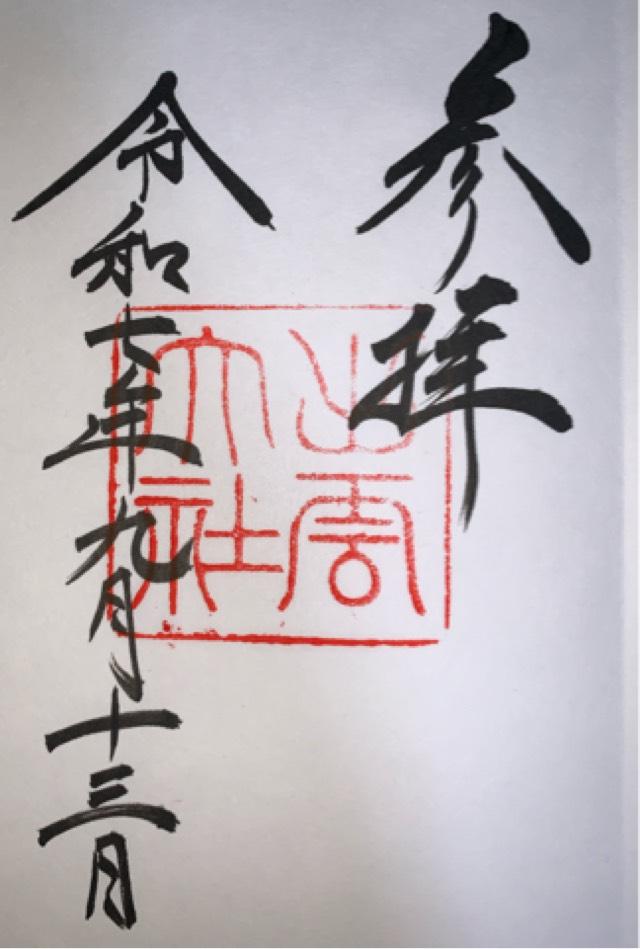 参拝
出雲
大社
令和七年九月十三日